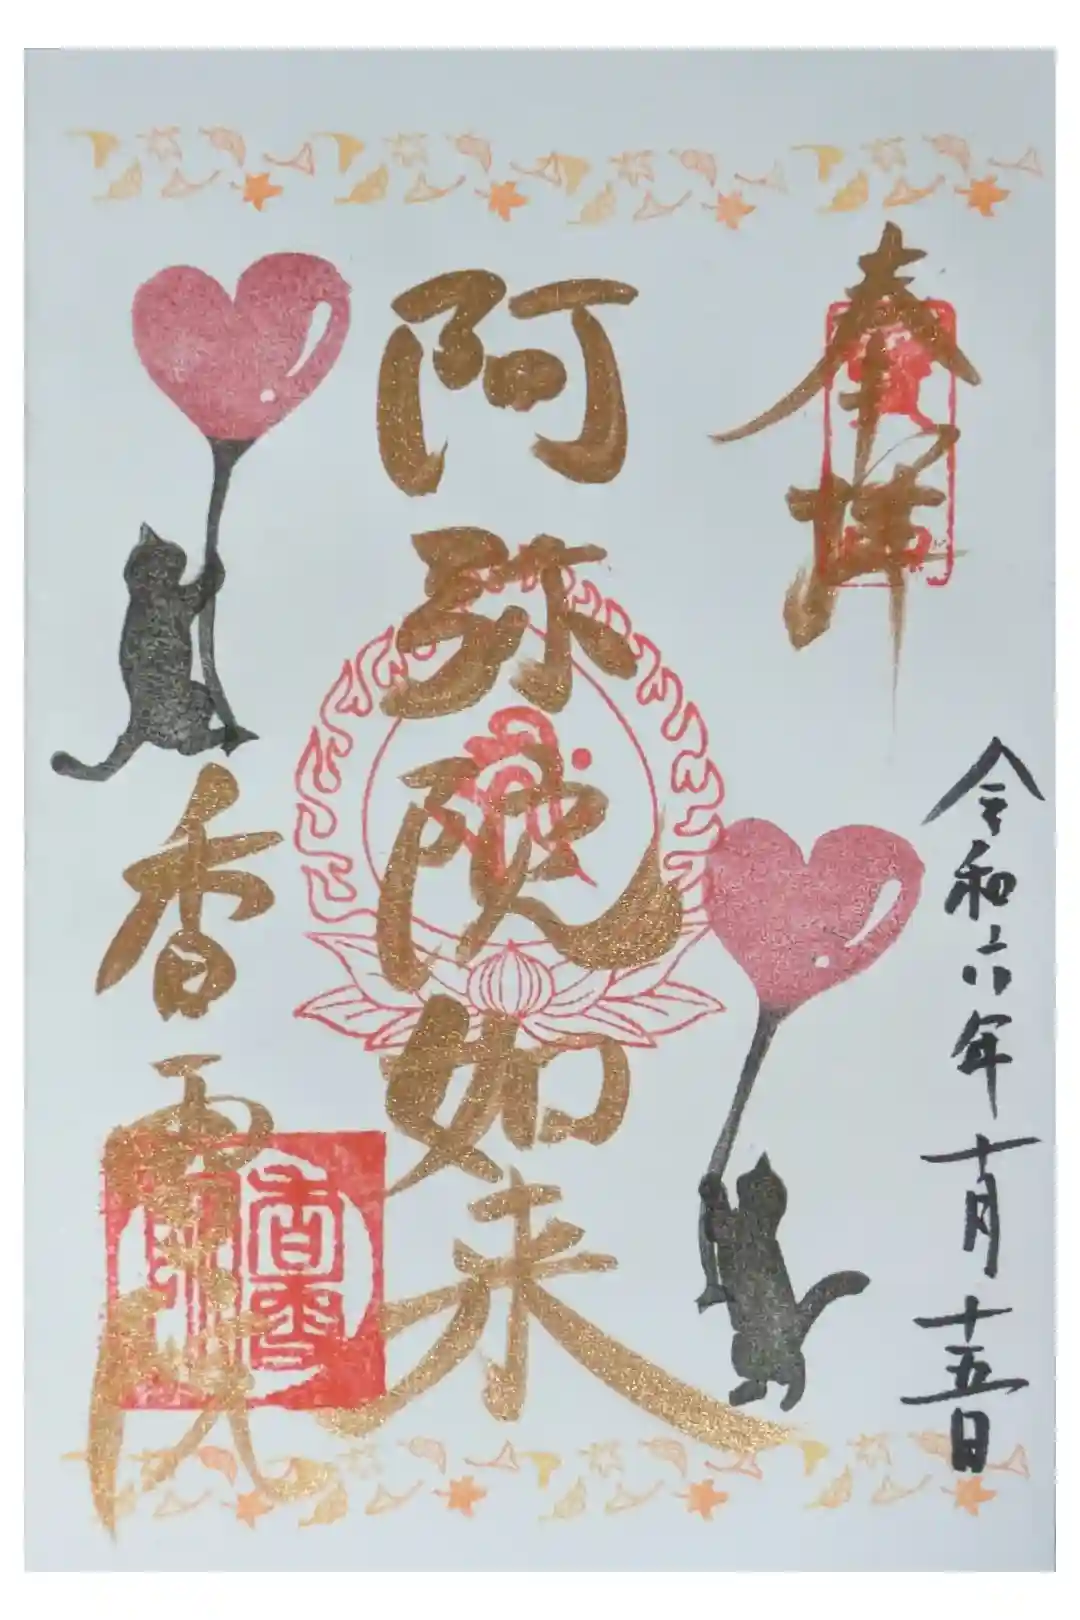 奉拝
令和六年十月十五日
阿弥陀如来
香雲院